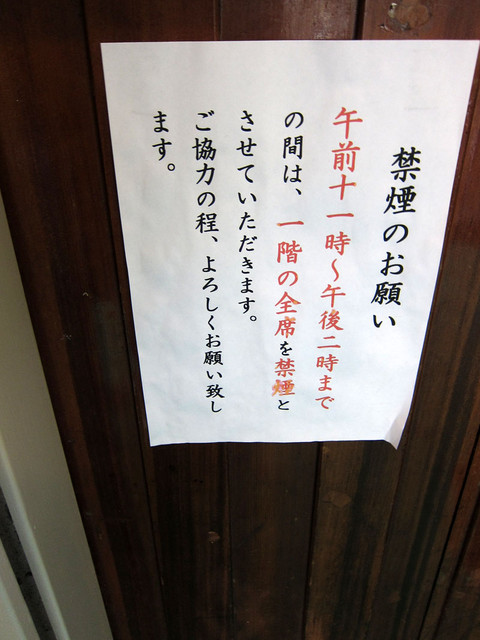 禁煙のお願い
午前十一時～午後二時まで
の間は、一階の全席を禁煙と
させていただきます。
ご協力の程、よろしくお願い致し
ます。